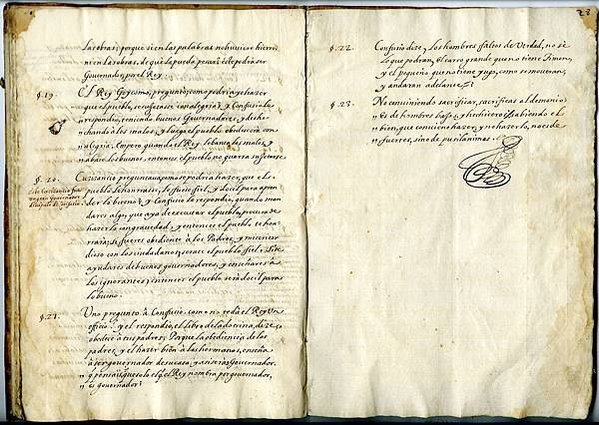 las obras; porque si en las palabras no huviere hierro,
ni en las obras, de que le pueda pesar; este podra ser
Governador, por el Rey.
§. 19. El Rey Goycimo, pregunto; como podria yo hazer
que el pueblo, se sugetasse con alegria; y Confucio le
respondio, teniendo buenos Governadores, y dese-
chando à los malos; y luego el pueblo obedecera con
alegria. Empero quando el Rey, lebanta los malos, y
no à los buenos; entonces el pueblo no querra sugetarse.
§. 20. preguntava; como se podria hazer, que el
pueblo le honrrasse, le fuesse fiel, y docil para apren-
der lo bueno; y Confucio le respondio, quando man-
dares algo, que aya de executar el pueblo, procura de
hazerlo con gravedad, y entonces el pueblo te hon-
rarà; si fueres obediente à los Padres, y misericor-
dioso con los ciudadanos; serate el pueblo fiel. Si te
ayudares de buenos governadores, y enseñares à
los ignorantes; entonces el pueblo serà docil para
lo bueno.
§. 21. Uno pregunto à Confucio; como no te dà el Rey un
officio; y el respondio, el libro de la doctrina dize;
obedece à tus padres; Porque la obediencia de los
padres, y el hazer bien à los hermanos, enseña
à ser governador de su casa, y assi seràs Governador.
el Rey nombra por governador,
es governador;
23
§. 22. Confucio dize, los hombres faltos de Verdad, no sè
lo que podran; el carro grande que no tiene Timon,
y el pequeño que no tiene yugo, como se moveran,
y andaran adelante;
§. 23. No conviniendo sacrificar, sacrificas al demonio
es de hombres baxos, y hechiceros; Sabiendo el
bien, que conviene hazer, y no hazerlo, no es de
fuertes, sino de pusilanimas.